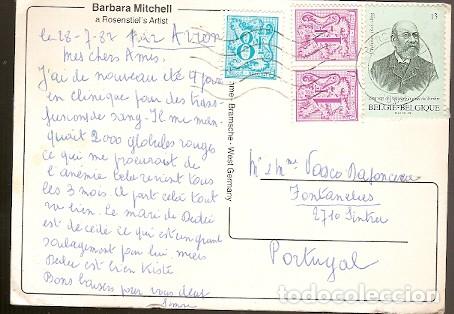 Barbara Mitchell
a Rosenstiel's Artist
le 28-7-82 Par Avion
Mes chers Amis,
J'ai de nouveau été 9 jours
en clinique pour des trans-
fusions de sang. Il me man-
quait 2000 globules rouges
ce qui me procurait de
l'anémie cela revient tous
les 3 mois. A part cela tout
va bien. Le mari de Dédée
est décédé ce qui est un grand
soulagement pour lui, mais
Dédée est bien triste
Bons baisers pour vous deux
8
1
1
13
BELGIË-BELGIQUE
Bramsche - West Germany
Mr Mme Vasco
Fontanelas
2710 Sintra
Portugal
todocoleccion